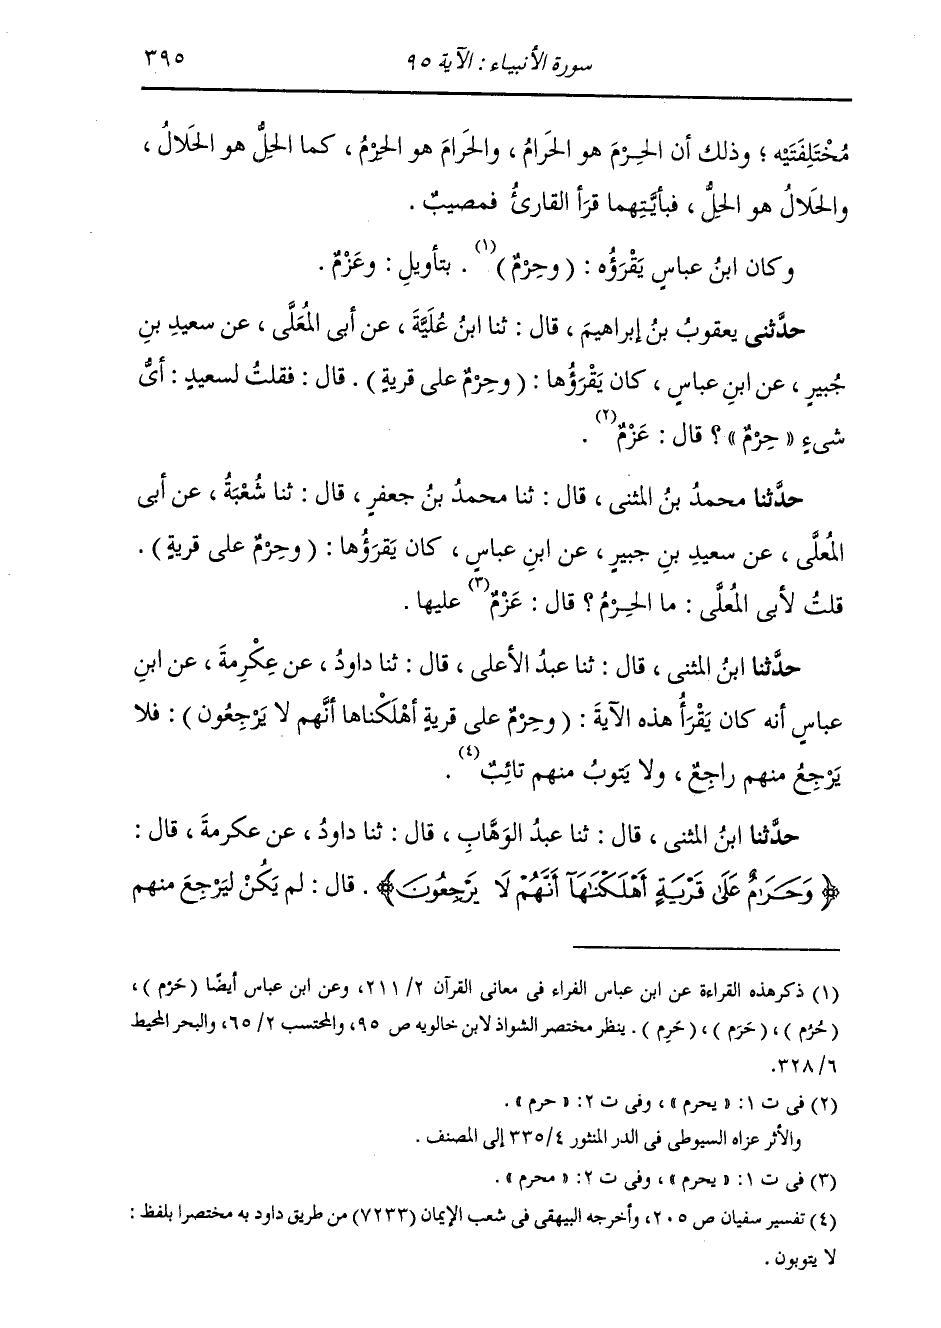 سورة الأنبياء : الآية ٩٥ ٣٩٥
مُخْتَلِفَتَيْه ؛ وذلك أن الحِرْمَ هو الحَرامُ ، والحَرامَ هو الحِرْمُ ، كما الحِلُّ هو الحَلالُ ،
والحَلالُ هو الحِلُّ ، فبأيَّتِهما قرَأ القارئُ فمصيبٌ .
وكان ابنُ عباسٍ يَقْرَؤُه : ( وحِرْمٌ )(١) . بتأويلِ : وعَزْمٌ .
حدَّثنى يعقوبُ بنُ إبراهيمَ ، قال : ثنا ابنُ عُلَيَّةَ ، عن أبى المُعَلَّى ، عن سعيدِ بنِ
جُبيرٍ ، عن ابنِ عباسٍ ، كان يَقْرَؤُها : ( وحِرْمٌ على قريةٍ ) . قال : فقلتُ لسعيدٍ : أىُّ
شىءٍ « حِرْمٌ » ؟ قال : عَزْمٌ(٢) .
حدَّثنا محمدُ بنُ المثنى ، قال : ثنا محمدُ بنُ جعفرٍ ، قال : ثنا شُعْبَةُ ، عن أبى
المُعلَّى ، عن سعيدِ بنِ جبيرٍ ، عن ابنِ عباسٍ ، كان يَقرَؤُها : ( وحِرْمٌ على قريةٍ ) .
قلتُ لأبى المُعلَّى : ما الحِرْمُ ؟ قال : عَزْمٌ(٣) عليها .
حدَّثنا ابنُ المثنى ، قال : ثنا عبدُ الأعلى ، قال : ثنا داودُ ، عن عِكْرِمةَ ، عن ابنِ
عباسٍ أنه كان يَقْرَأُ هذه الآيةَ : ( وحِرْمٌ على قريةٍ أهْلَكْناها أنَّهم لا يَرْجِعُون ) : فلا
يَرْجِعُ منهم راجِعٌ ، ولا يَتوبُ منهم تائِبٌ(٤) .
حدَّثنا ابنُ المثنى ، قال : ثنا عبدُ الوَهَّابِ ، قال : ثنا داودُ ، عن عكرمةَ ، قال :
﴿ وَحَرَامٌ عَلَى قَرْيَةٍ أَهْلَكْنَاهَا أَنَّهُمْ لَا يَرْجِعُونَ ﴾ . قال : لم يَكُنْ ليَرْجِعَ منهم
(١) ذكر هذه القراءة عن ابن عباس الفراء فى معانى القرآن ٢/ ٢١١، وعن ابن عباس أيضًا ( حَرْم ) ،
( حُرُم ) ، ( حَرَم ) ، ( حَرِم ) . ينظر مختصر الشواذ لابن خالويه ص ٩٥، والمحتسب ٢/ ٦٥، والبحر المحيط
٦/ ٣٢٨.
(٢) فى ت ١: « يحرم » ، وفى ت ٢: « حرم » .
والأثر عزاه السيوطى فى الدر المنثور ٤/ ٣٣٥ إلى المصنف .
(٣) فى ت ١: « يحرم » ، وفى ت ٢: « محرم » .
(٤) تفسير سفيان ص ٢٠٥، وأخرجه البيهقى فى شعب الإيمان (٧٢٣٣) من طريق داود به مختصرا بلفظ :
لا يتوبون .